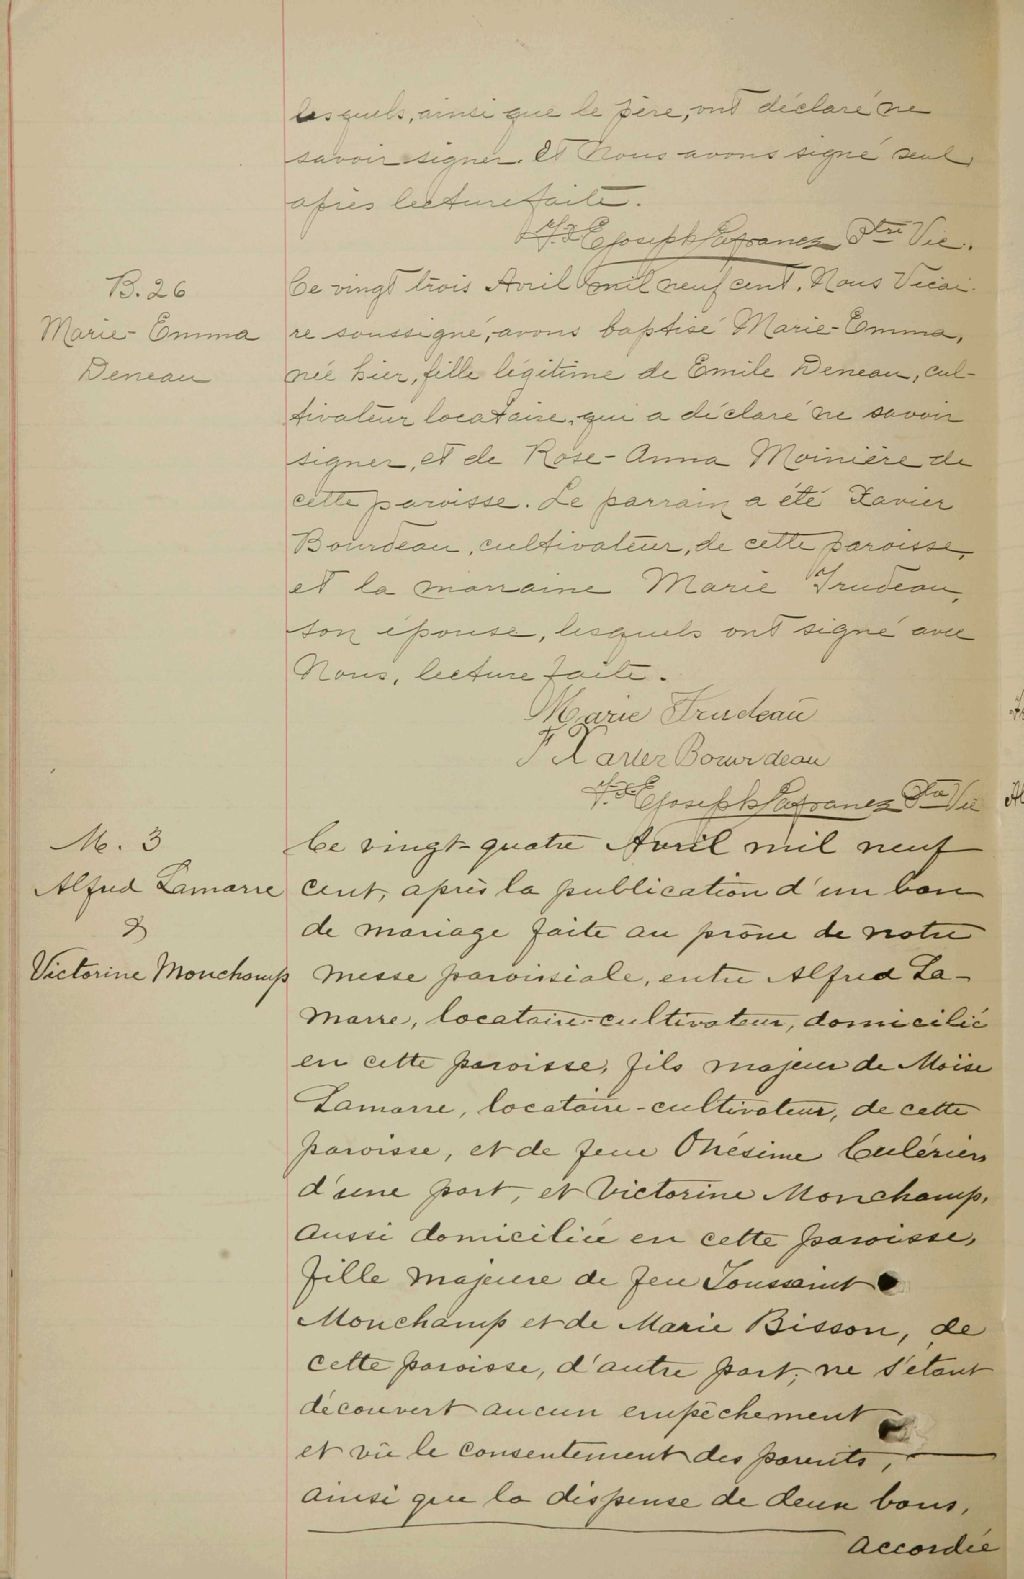 lesquels, ainsi que le père, ont déclaré ne
savoir signer. Et Nous avons signé seul,
après lecture faite.
Joseph Lafrance Ptre Vic.
B. 26
Marie-Emma
Deneau
Ce vingt trois Avril mil neuf cent. Nous Vicai-
re soussigné, avons baptisé Marie-Emma,
née hier, fille légitime de Emile Deneau, cul-
tivateur locataire, qui a déclaré ne savoir
signer, et de Rose-Anna Moinière de
cette paroisse. Le parrain a été Xavier
Bourdeau, cultivateur, de cette paroisse,
et la marraine Marie Trudeau,
son épouse, lesquels ont signé avec
Nous, lecture faite.
Marie Trudeau
F Xavier Bourdeau
Joseph Lafrance Ptre Vic
M. 3
Alfred Lamarre
&
Victorine Monchamp
Ce vingt-quatre Avril mil neuf
cent, après la publication d'un ban
de mariage faite au prône de notre
messe paroissiale, entre Alfred La-
marre, locataire-cultivateur, domicilié
en cette paroisse, fils majeur de Moïse
Lamarre, locataire-cultivateur, de cette
paroisse, et de feue Onésime Culérier
d'une part, et Victorine Monchamp,
aussi domiciliée en cette paroisse,
fille majeure de feu Toussaint
Monchamp et de Marie Bisson, de
cette paroisse, d'autre part; ne s'étant
découvert aucun empêchement
et vû le consentement des parents,
ainsi que la dispense de deux bans,
accordée